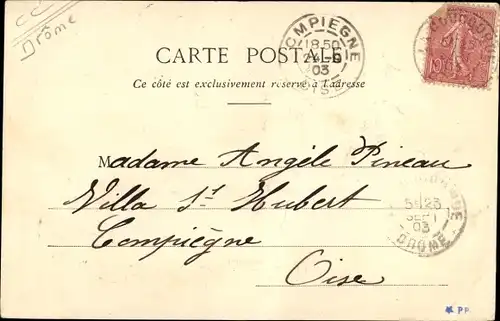 Drôme
CARTE POSTALE
Ce côté est exclusivement réservé à l'adresse
COMPIEGNE
18 50
03
OISE
10
Madame Angèle Pineau
Villa St Hubert
Compiègne
Oise
5 23
SEPT
03
DROME
PP